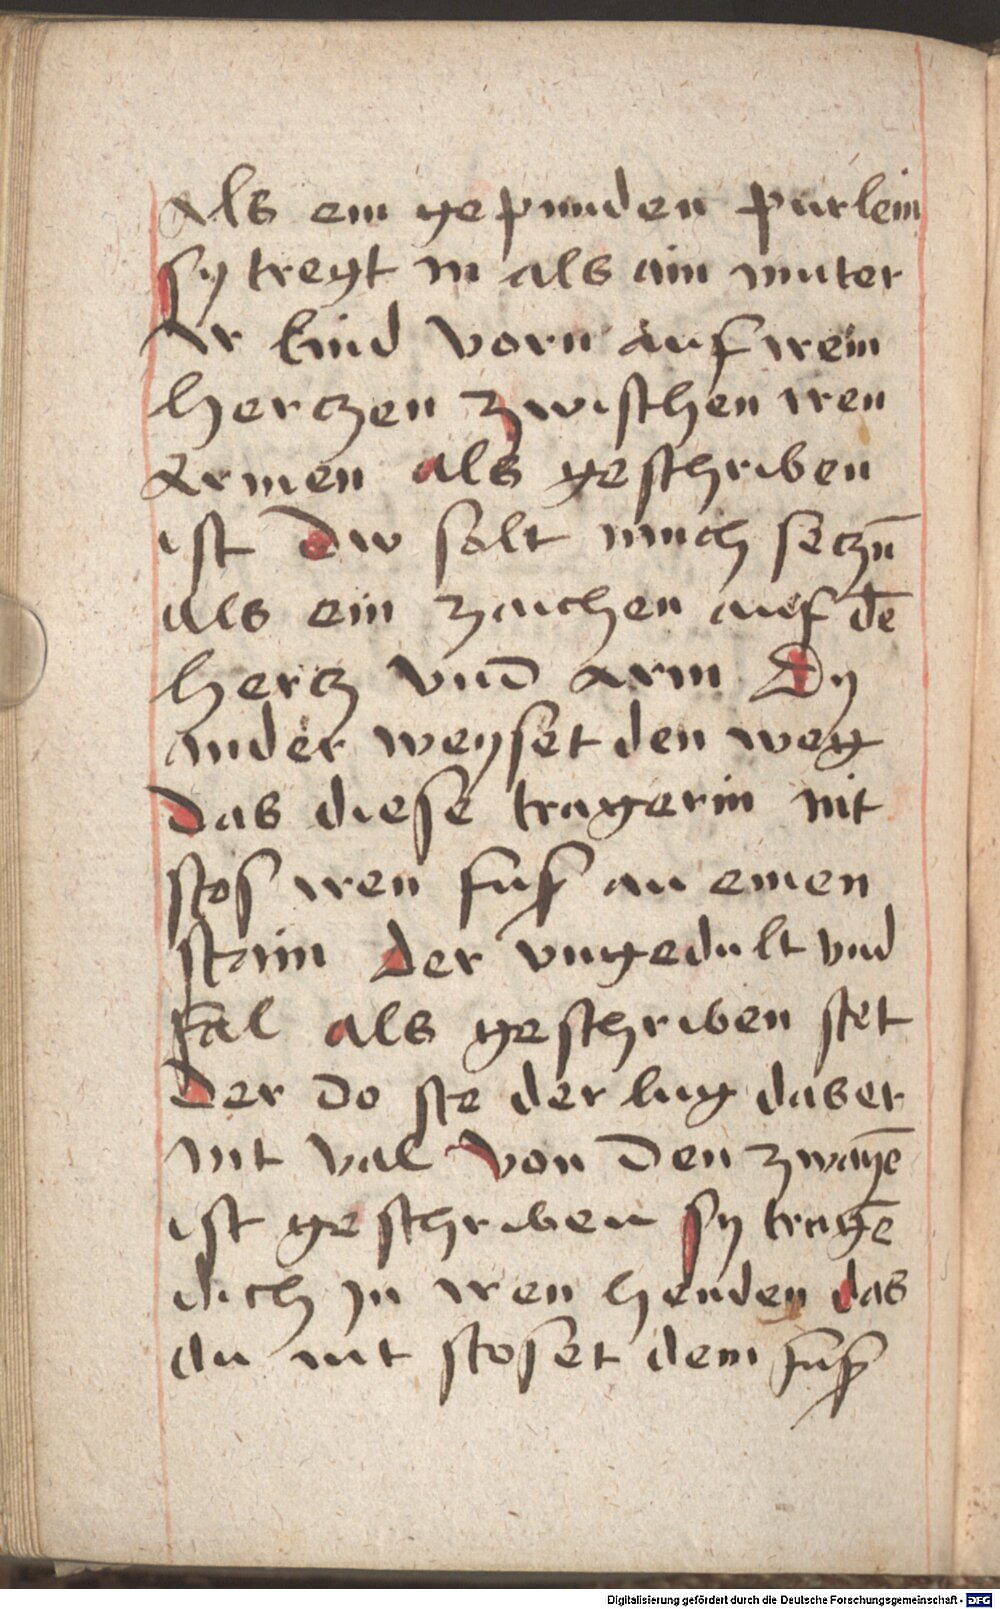 Als ein gepunden purlein
sy tregt in als ain muter
ir kind vorn auf irem
herczen zwischen iren
armen als geschriben
ist Dw solt mich seczn̄
als ein zaichen auf dē
hercz vnd arm Dy
ander weyset den weg
das diese tragerin nit
stos iren fusʒ an einen
stain der vngedult vnd
fal als geschriben stet
Der do ste der lug das er
nit val von den zwayē
ist geschriben sy tragē
dich jn iren henden das
du nit stoset dein fusʒ
Digitalisierung gefördert durch die Deutsche Forschungsgemeinschaft - DFG